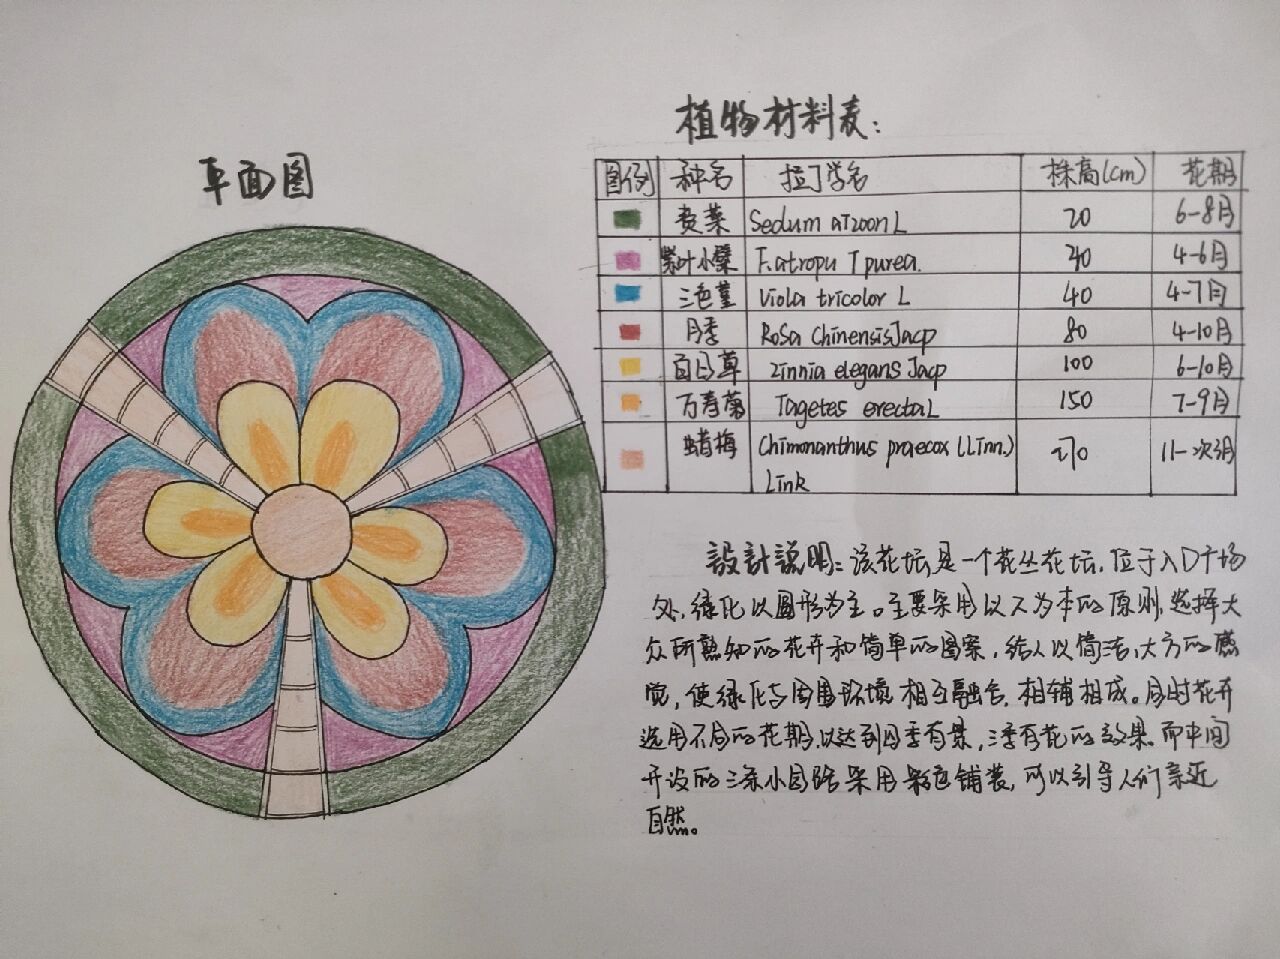 植物材料表:
平面图
图例 种名 拉丁学名 株高(cm) 花期
费菜 Sedum aizoon L 20 6-8月
紫叶小檗 F.atropu Tpurea. 40 4-6月
三色堇 Viola tricolor L 40 4-7月
月季 Rosa chinensis Jacp 80 4-10月
百日草 Zinnia elegans Jacp 100 6-10月
万寿菊 Tagetes erecta L 150 7-9月
蜡梅 Chimonanthus praecox (Linn.) 270 11-次3月
Link
設計説明:该花坛是一个花丛花坛,位于入口广场
处,绿化以圆形为主。主要采用以人为本的原则,选择大
众所熟知的花卉和简单的图案,给人以简洁,大方的感
觉,使绿化与周围环境相互融合,相辅相成。同时花卉
选用不同的花期,以达到四季有景,三季有花的效果,而中间
开设的三条小园路采用彩色铺装,可以引导人们亲近
自然。